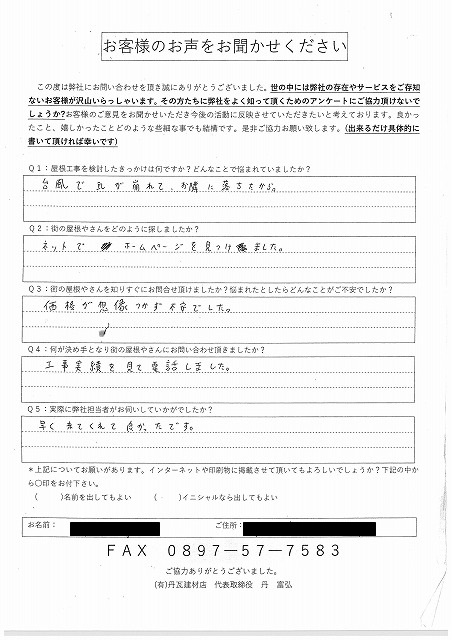 お客様のお声をお聞かせください
この度は弊社にお問い合わせを頂き誠にありがとうございました。世の中には弊社の存在やサービスをご存知
ないお客様が沢山いらっしゃいます。その方たちに弊社をよく知って頂くためのアンケートにご協力頂けないで
しょうか?お客様のご意見をお聞かせいただき今後の活動に反映させていただきたいと考えております。良かっ
たこと、嬉しかったことどのような些細な事でも結構です。是非ご協力お願い致します。(出来るだけ具体的に
書いて頂ければ幸いです)
Q1：屋根工事を検討したきっかけは何ですか？どんなことで悩まれていましたか？
台風で瓦が崩れて、お隣に落ちたから。
Q2：街の屋根やさんをどのように探しましたか？
ネットで ホームページを見つけ ました。
Q3：街の屋根やさんを知りすぐにお問合せ頂けましたか？悩まれたとしたらどんなことがご不安でしたか？
価格が想像つかず不安でした。
Q4：何が決め手となり街の屋根やさんにお問い合わせ頂きましたか？
工事実績を見て電話しました。
Q5：実際に弊社担当者がお伺いしていかがでしたか？
早く来てくれて良かったです。
＊上記についてお願いがあります。インターネットや印刷物に掲載させて頂いてもよろしいでしょうか？下記の中か
ら〇印をお付下さい。
(　　)名前を出してもよい　　(　　)イニシャルなら出してもよい
お名前：　　ご住所：
FAX 0897―57―7583
ご協力ありがとうございました。
(有)丹瓦建材店　代表取締役　丹　富弘